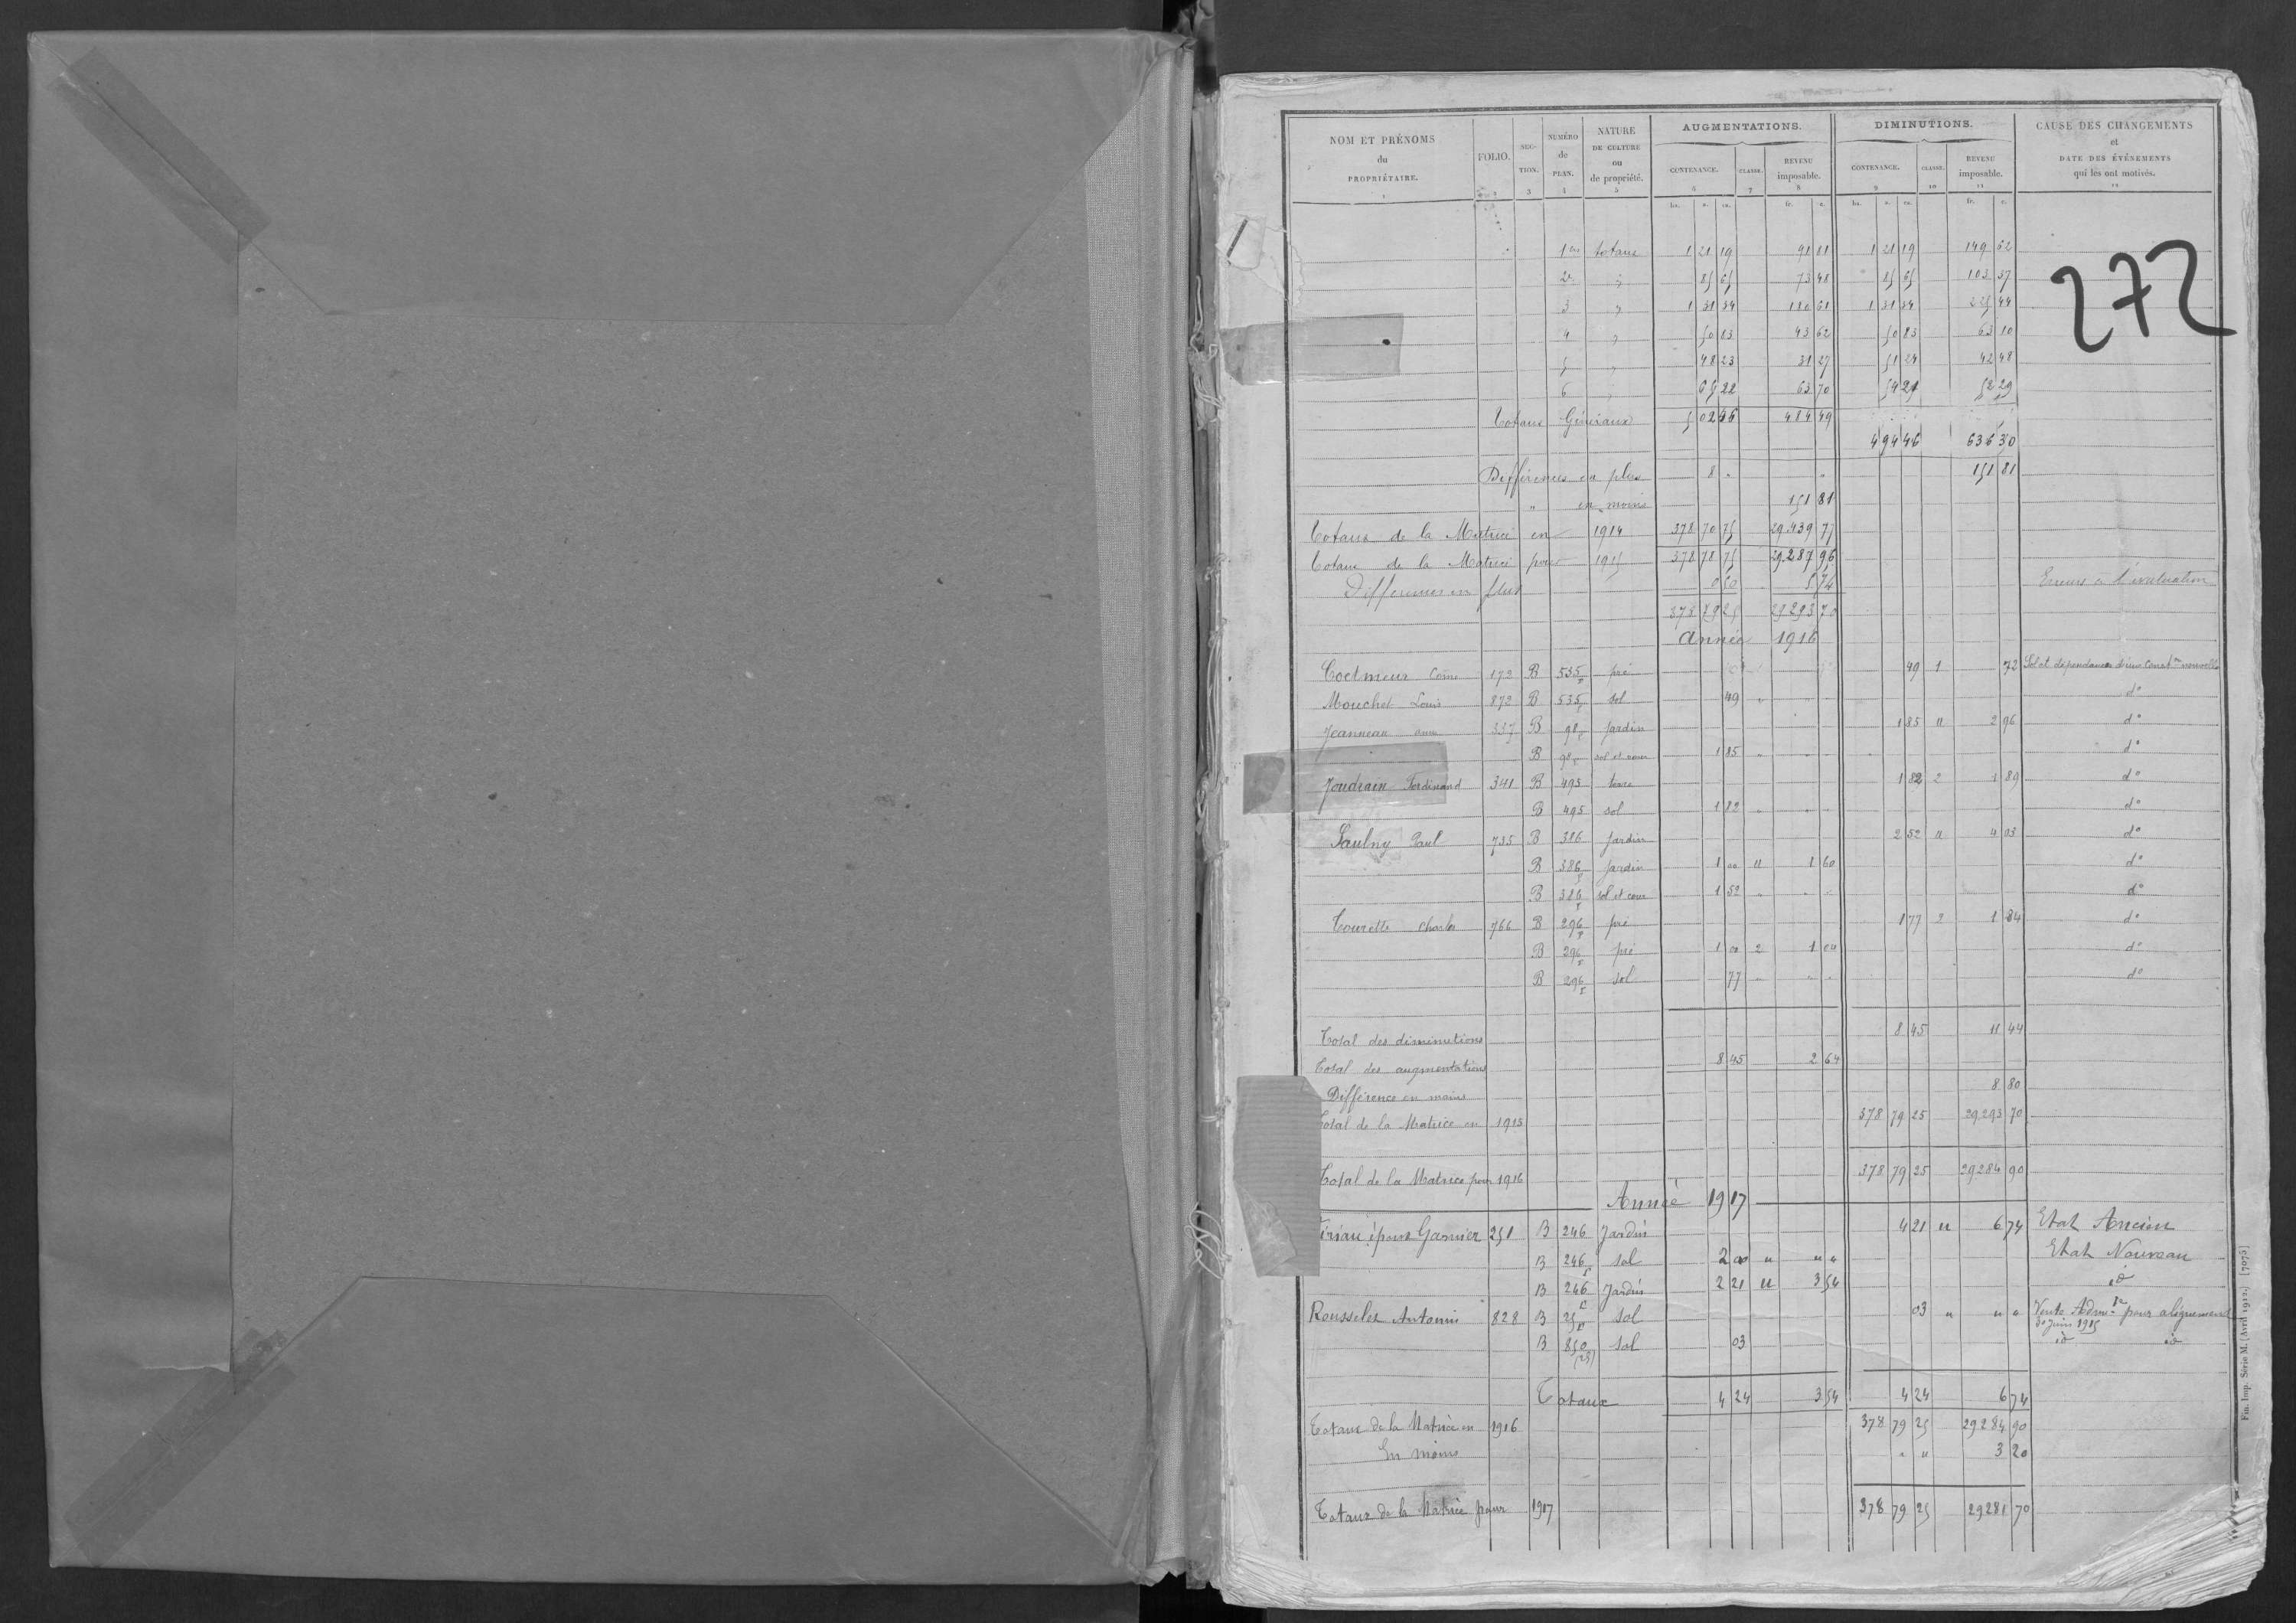 NOM ET PRÉNOMS du PROPRIÉTAIRE. FOLIO. SECTION. NUMÉRO de PLAN. NATURE DE CULTURE ou de propriété. AUGMENTATIONS. DIMINUTIONS. CAUSE DES CHANGEMENTS et DATE DES ÉVÉNEMENTS qui les ont motivés.
CONTENANCE. CLASSE. REVENU imposable. CONTENANCE. CLASSE. REVENU imposable.
1 2 3 4 5 6 7 8 9 10 11 12
ha. a. ca. fr. c. ha. a. ca. fr. c.
272
1ers totaux 1 21 19 91 81 1 21 19 149 62
2e " 85 65 73 48 85 65 103 37
3 " 1 31 34 180 61 1 31 34 225 44
4 " 50 83 43 62 50 83 63 10
5 " 48 23 31 27 51 24 42 48
6 " 65 22 63 70 54 21 52 29
Totaux Généraux 5 02 46 484 49
4 94 46 636 30
Différences en plus 8 " " 151 81
" en moins 151 81
Totaux de la Matrice en 1914 378 70 75 29.439 77
Totaux de la Matrice pour 1915 378 78 75 29.287 96
Différences en plus 0 50 5 74 Erreurs à l'évaluation
378 79 25 29293 70
Année 1916
Coetmeur Come 172 B 535p pré 49 1 72 Sol et dépendances d'une conston nouvelle
Mouchet Louis 872 B 535p sol 49 " " " do
Jeanneau 337 B 98p jardin 1 85 " 2 96 do
B 98p sol et cour 1 85 " " " do
Joudrain Ferdinand 341 B 495 terre 1 82 2 1 89 do
B 495 sol 1 82 " " " do
Saulny Paul 735 B 386 jardin 2 52 " 4 03 do
B 386p jardin 1 00 " 1 60 do
B 386p sol et cour 1 52 " " " do
Tourette Charles 766 B 296p pré 1 77 2 1 84 do
B 296p pré 1 00 2 1 04 do
B 296p sol 77 " " " do
Total des diminutions 8 45 11 44
Total des augmentations 8 45 2 64
Différence en moins 8 80
Total de la Matrice en 1915 378 79 25 29.293 70
Total de la Matrice pour 1916 378 79 25 29284 90
Année 1917
épouse Garnier 251 B 246 Jardin 4 21 " 6 74 Etat Ancien
B 246p sol 2 00 " " " Etat Nouveau
B 246p Jardin 2 21 " 3 54 id
Rousselet Antonin 828 B 25p sol 03 " " " Vente Admve pour alignement
30 Juin 1915
B 850 (25) sol 03 id id
Totaux 4 24 3 54 4 24 6 74
Totaux de la Matrice en 1916 378 79 25 29284 90
En moins " " 3 20
Totaux de la Matrice pour 1917 378 79 25 29281 70
Fin. Imp. Série M. [Avril 1912.] [7073]